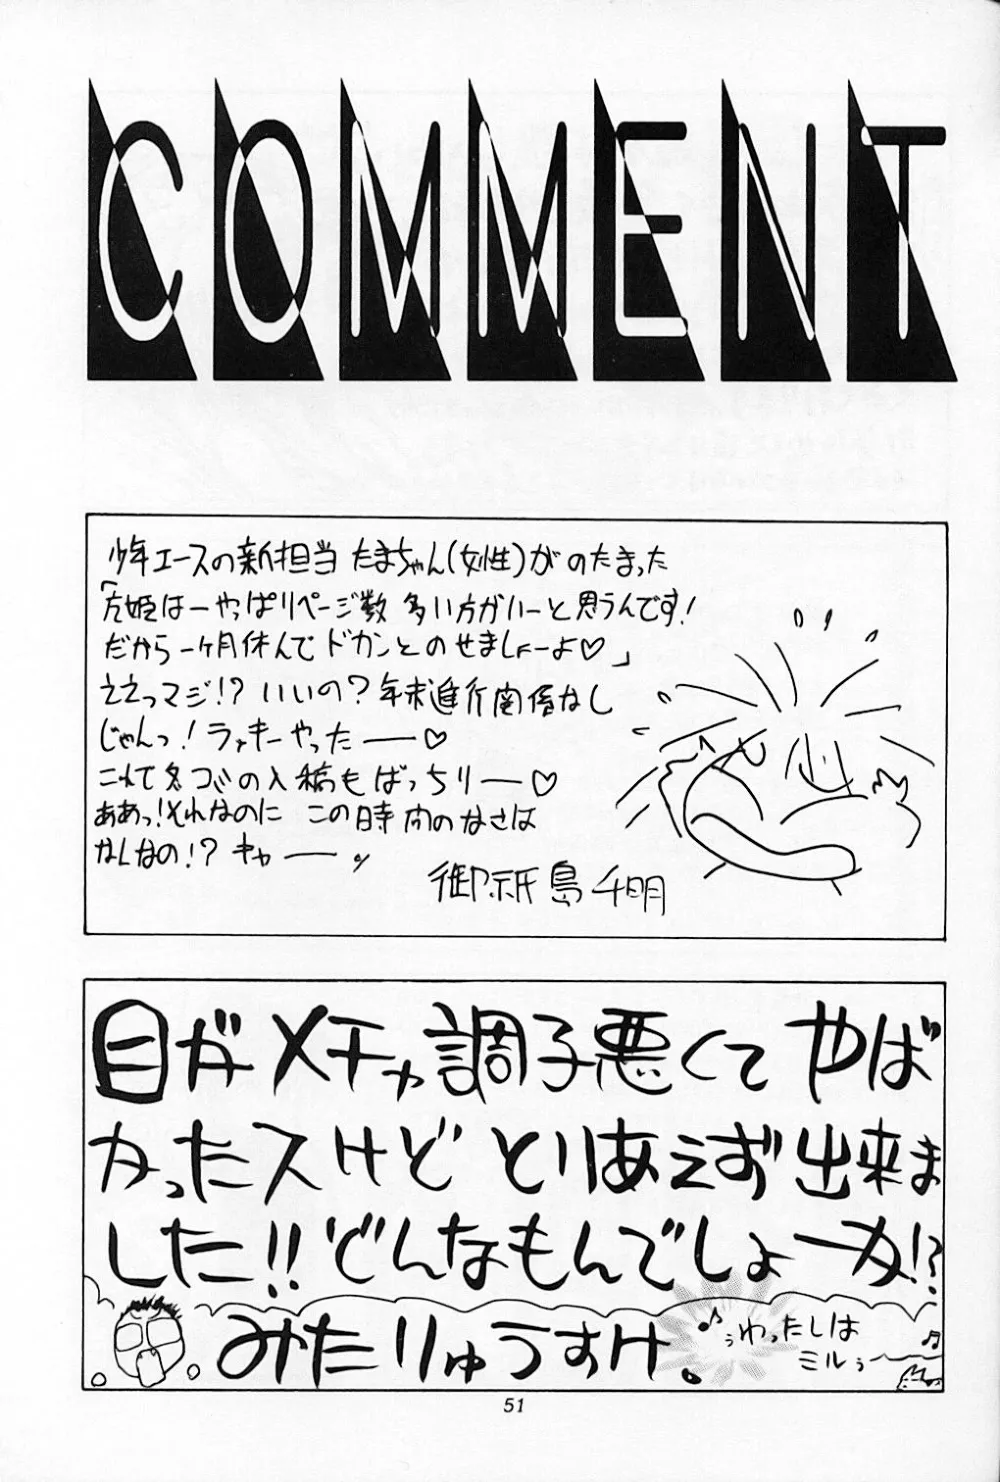 COMMENT
少年エースの新担当 たまちゃん(女性)がのたまった
「左姫はーやっぱりページ数 多い方がいーと思うんです!
だから一ヶ月休んで ドカンとのせましょーよ♡」
ええっマジ!? いいの? 年末進行関係なし
じゃんっ! ラッキーやったー♡
これで冬コミの入稿もばっちりー♡
ああっ!それなのに この時間のなさは
なんなの!? キャーッ
御祇島千明
目がメチャ調子悪くて やば
かったスけど とりあえず出来ま
した!! どんなもんでしょーか!?
みたりゅうすけ。
♪ぅわったしは
ミルぅ〜♬
51